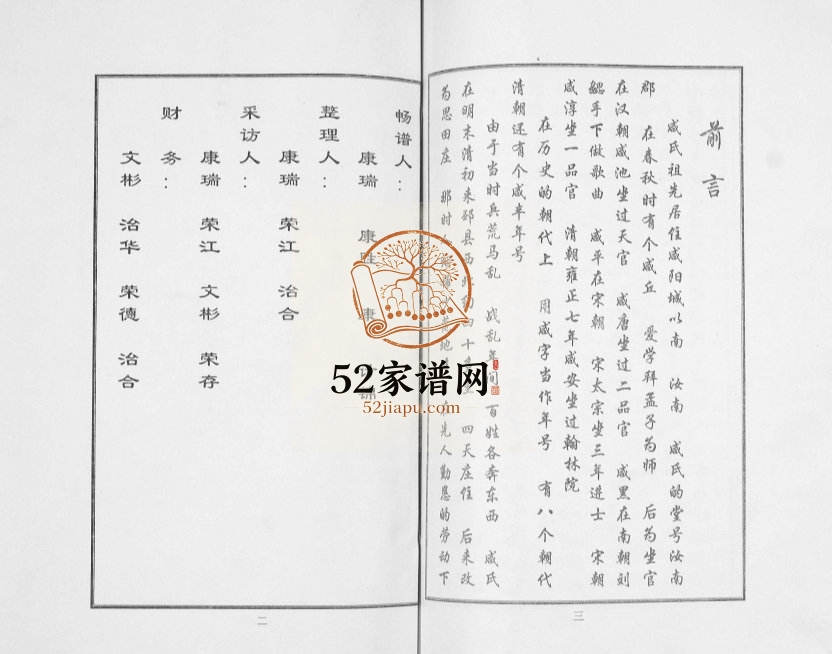 前言
咸氏祖先居住咸阳城以南 汝南 咸氏的堂号汝南
郡 在春秋时有个咸丘 爱学拜孟子为师 后为坐官
在汉朝咸池坐过天官 咸唐坐过二品官 咸黑在南朝刘
勰手下做歌曲 咸平在宋朝 宋太宗坐三年进士 宋朝
咸淳坐一品官 清朝雍正七年咸安坐过翰林院
在历史的朝代上 用咸字当作年号 有八个朝代
清朝还有个咸丰年号
由于当时兵荒马乱 战乱年间 百姓各奔东西 咸氏
在明末清初来郯县西 四十 四天庄住 后来改
为思田庄 那时 先人勤恳的劳动下
三
畅谱人：
康瑞 康胜 康
整理人：
康瑞 荣江 治合
采访人：
康瑞 荣江 文彬 荣存
财务：
文彬 治华 荣德 治合
二
52家谱网
52jiapu.com